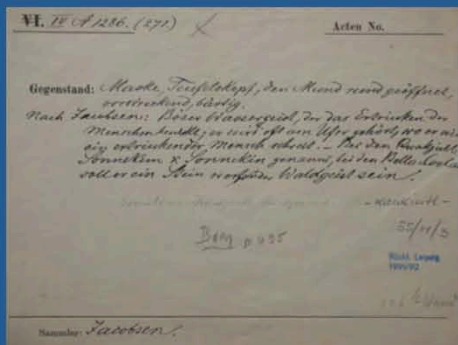 VI. IV A 1286. (271)
Acten No.
Gegenstand: Maske, Teufelskopf, den Mund rund geöffnet,
vorstreckend, bärtig.
Nach Jacobsen: Böser Wassergeist, der das Ertrinken der
Menschen; er wird oft am Ufer gehört, wo er wie
ein ertrinkender Mensch schreit. - Bei den Quakjutl,
Sonnekem x Sonnekin genannt, bei den
soll er ein Stein werfender Waldgeist sein!
- Kwakiutl -
Berg p 495
55/11/3
Rückf. Leipzig
1991/92
Sammler: Jacobsen.